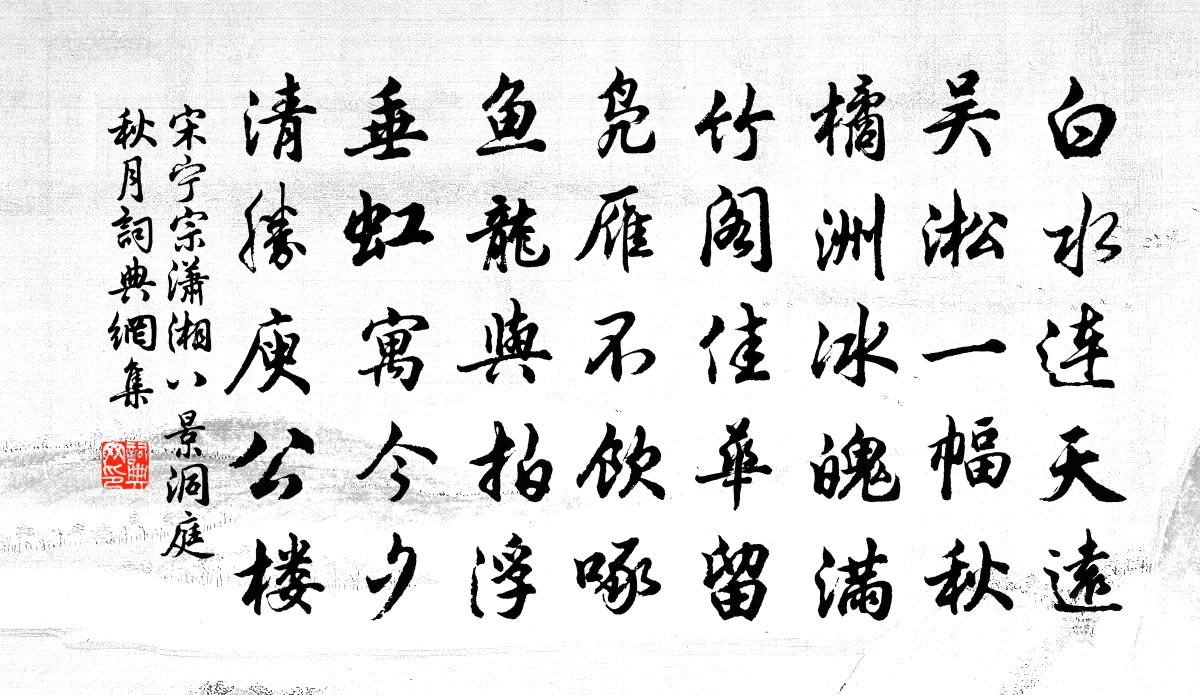 白水连天遠
吴淞一幅秋
橘洲冰魄滿
竹阁佳華留
凫雁不飲啄
鱼龍與拍浮
垂虹寓今夕
清勝庾公楼
宋宁宗瀟湘八景洞庭
秋月詞典網集